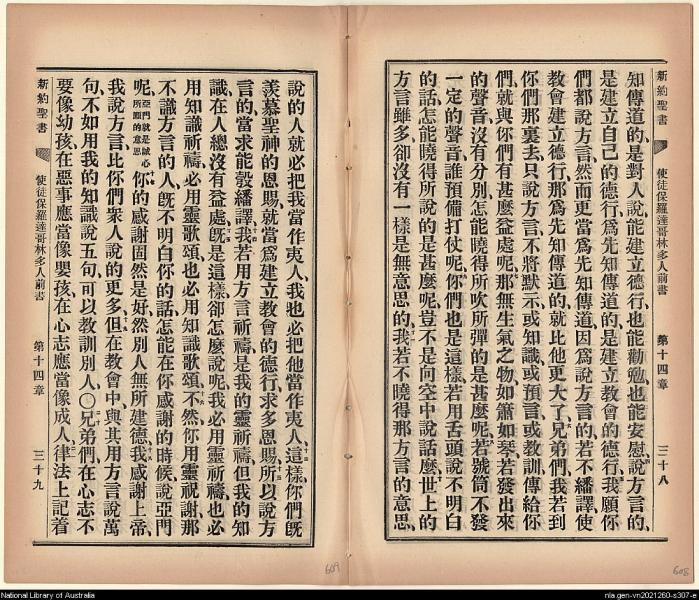 新約聖書 使徒保羅達哥林多人前書 第十四章 三十八
知傳道的、是對人說、能建立德行、也能勸勉、也能安慰、說方言的、
是建立自己的德行、爲先知傳道的、是建立教會的德行、我願你
們都說方言、然而更當爲先知傳道、因爲說方言的、若不繙譯、使
教會建立德行、那爲先知傳道的、就比他更大了、兄弟們、我若到
你們那裏去、只說方言、不將默示、或知識、或預言、或教訓、傳給你
們、就與你們有甚麼益處呢、那無生氣之物、如簫如琴、若發出來
的聲音、沒有分別、怎能曉得所吹所彈的是甚麼呢、若號筒不發
一定的聲音、誰預備打仗呢、你們也是這樣、若用舌頭說不明白
的話、怎能曉得所說的是甚麼呢、豈不是向空中說話麼、世上的
方言雖多、卻沒有一樣是無意思的、我若不曉得那方言的意思、
說的人就必把我當作夷人、我也必把他當作夷人、這樣、你們旣
羨慕聖神的恩賜、就當爲建立教會的德行、求多恩賜、所以說方
言的、當求能彀繙譯、我若用方言祈禱、是我的靈祈禱、但我的知
識、在人總沒有益處、旣是這樣、卻怎麼說呢、我必用靈祈禱、也必
用知識祈禱、必用靈歌頌、也必用知識歌頌、不然、你用靈祝謝、那
不識方言的人、旣不明白你的話、怎能在你感謝的時候、說亞門
呢、亞門就是誠心所願的意思你的感謝固然是好、然別人無所建德、我感謝上帝、
我說方言、比你們衆人說的更多、但在教會中、與其用方言說萬
句、不如用我的知識說五句、可以教訓別人、○兄弟們、在心志不
要像幼孩、在惡事應當像嬰孩、在心志應當像成人、律法上記着
新約聖書 使徒保羅達哥林多人前書 第十四章 三十九
609
608
National Library of Australia
nla.gen-vn2021260-s307-e